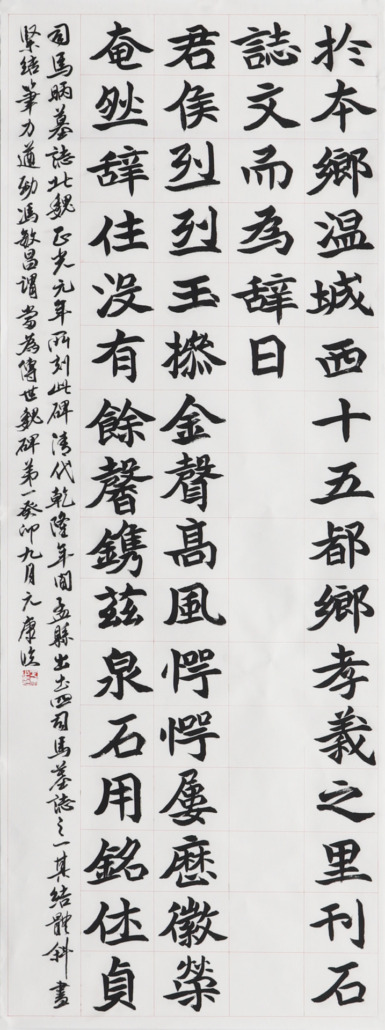 扵本鄉温城西十五都鄉孝義之里刊石
誌文而為辞曰
君侯烈烈玉摖金聲高風愕愕屢歷徽榮
奄然辞住没有餘馨鐫茲泉石用銘仕貞
司馬昞墓誌北魏正光元年所刻此碑清代乾隆年間孟縣出土四司馬墓誌之一其結體斜畫
緊結筆力遒勁馮敏昌謂當為傳世魏碑第一癸卯九月元康臨